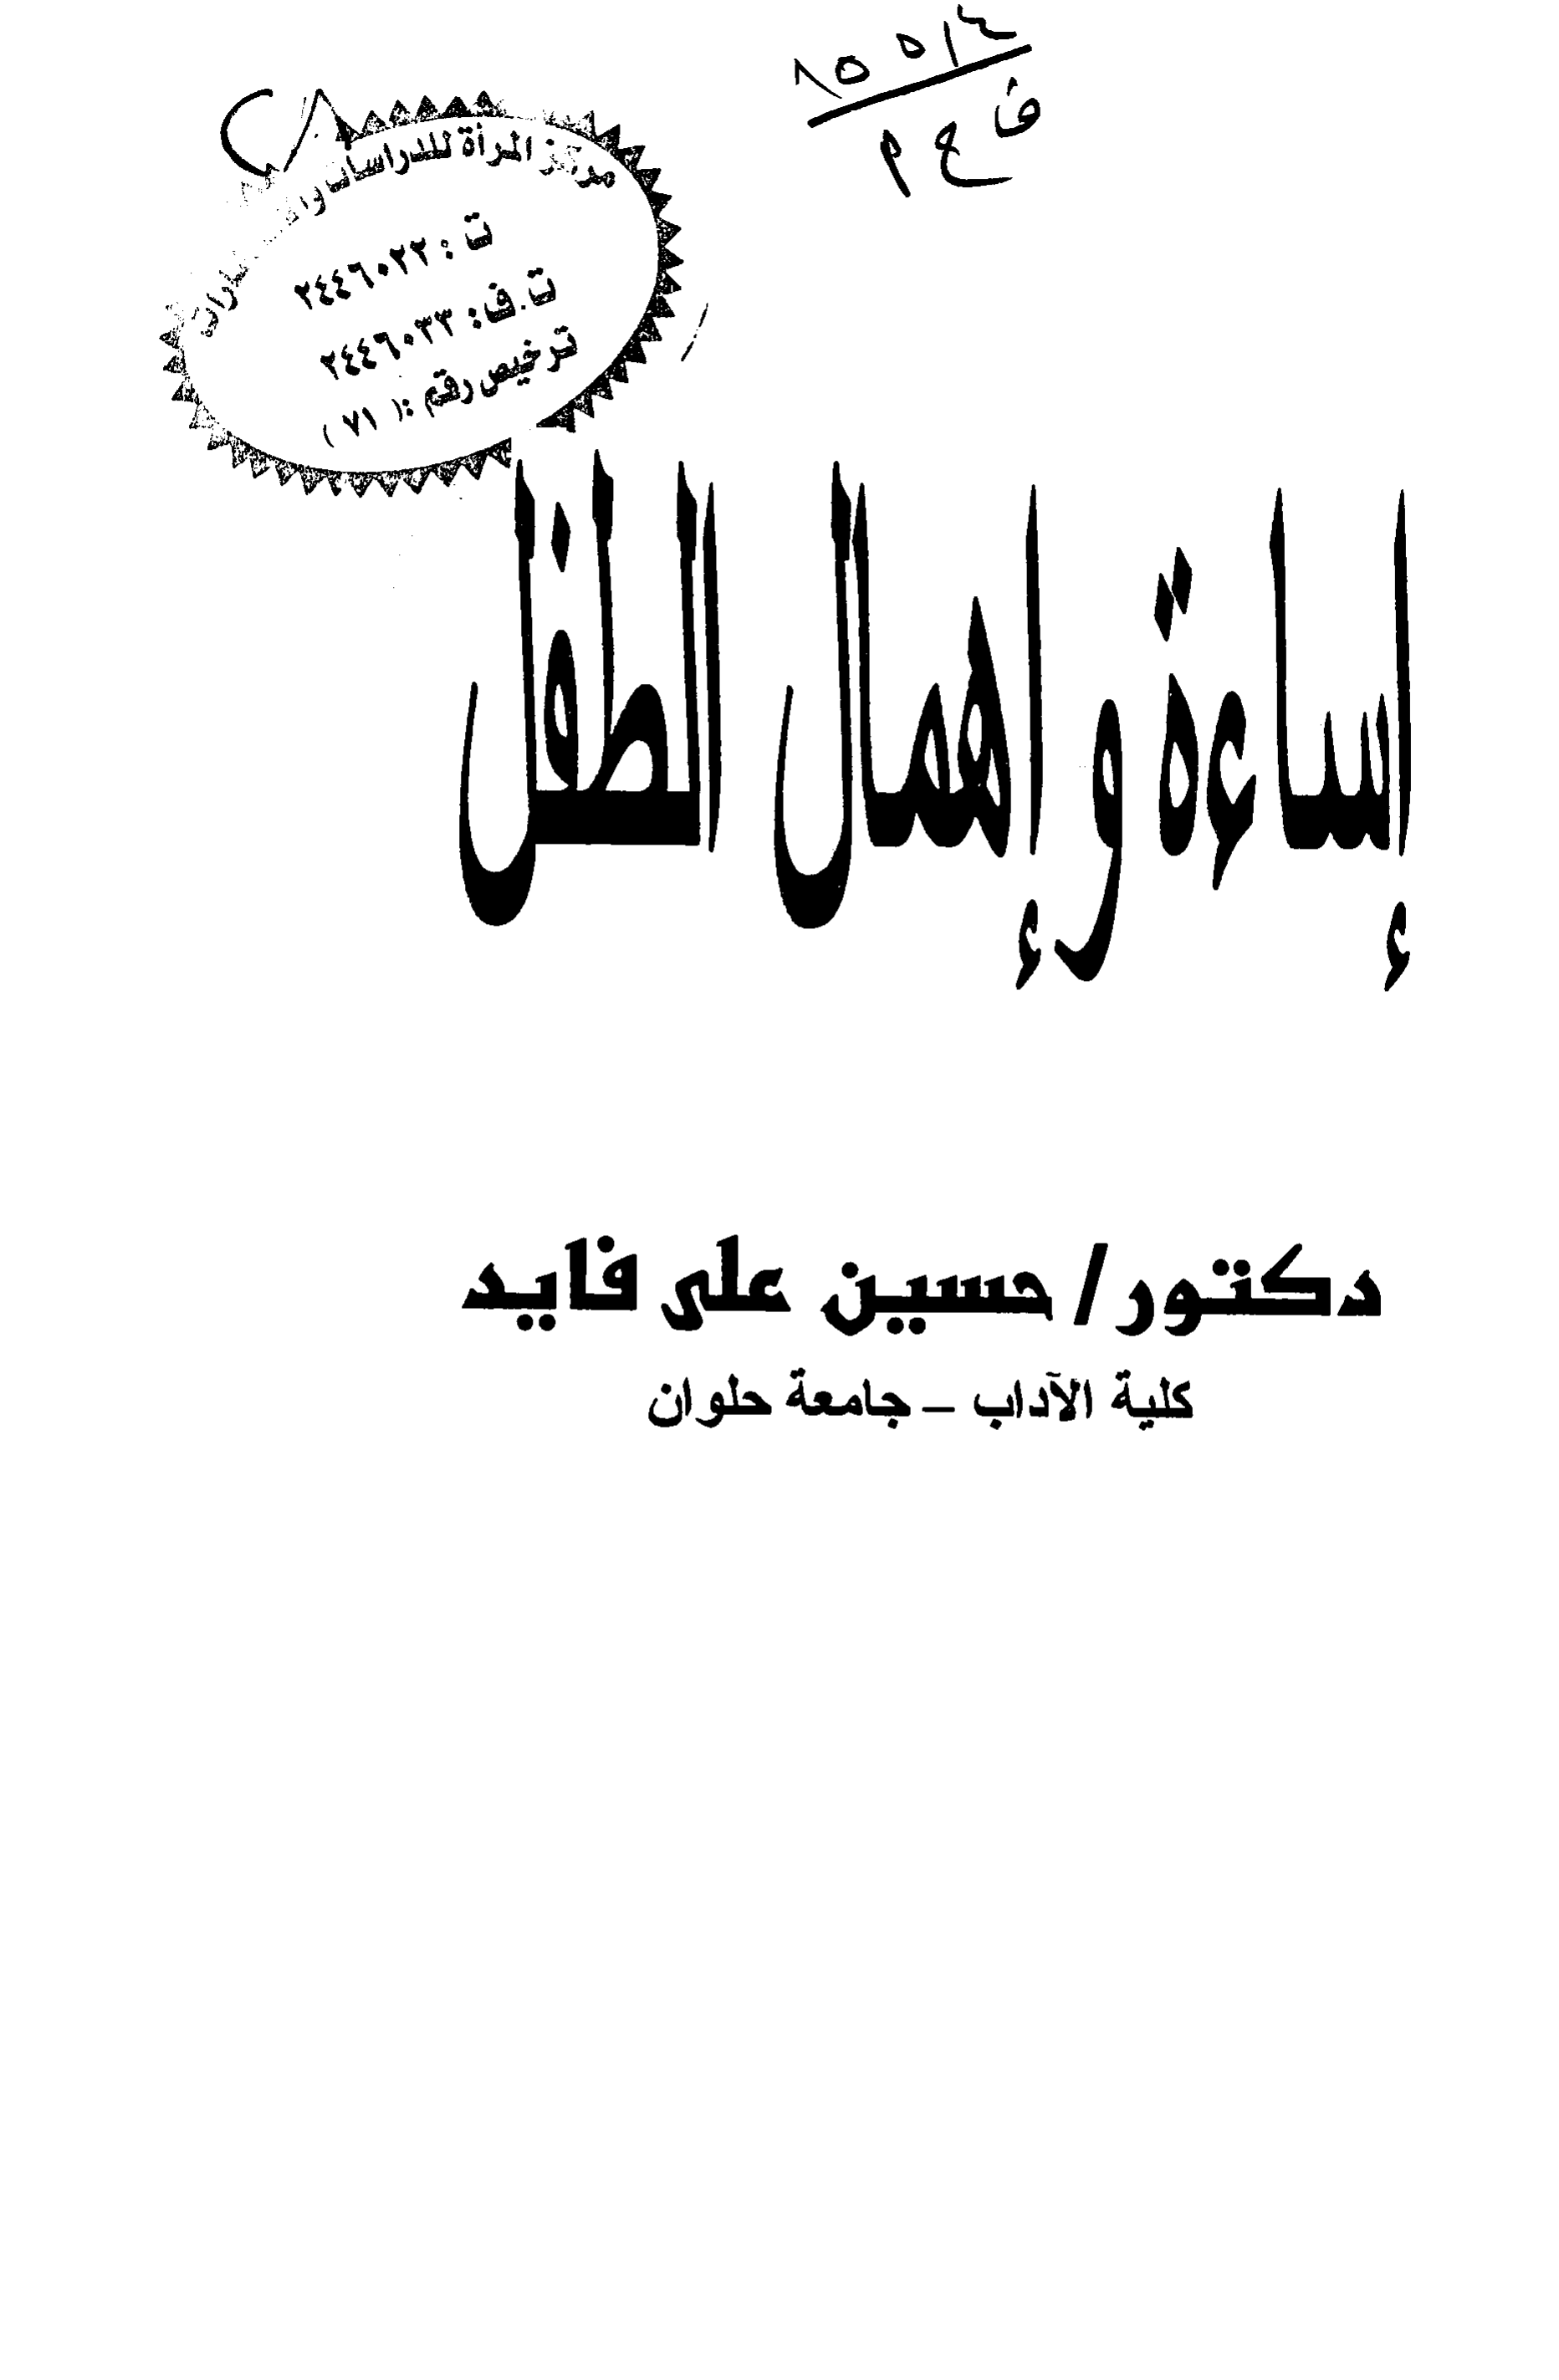 ف ع م
مركز المرأة للدراسات
ت : ٢٤٤٦٠٢٢
ت.ف: ٢٤٤٦٠٣٣
ترخيص رقم :( ٧١ )
إساءة وإهمال الطفل
دكتور/ حسين على فايد
كلية الآداب – جامعة حلوان